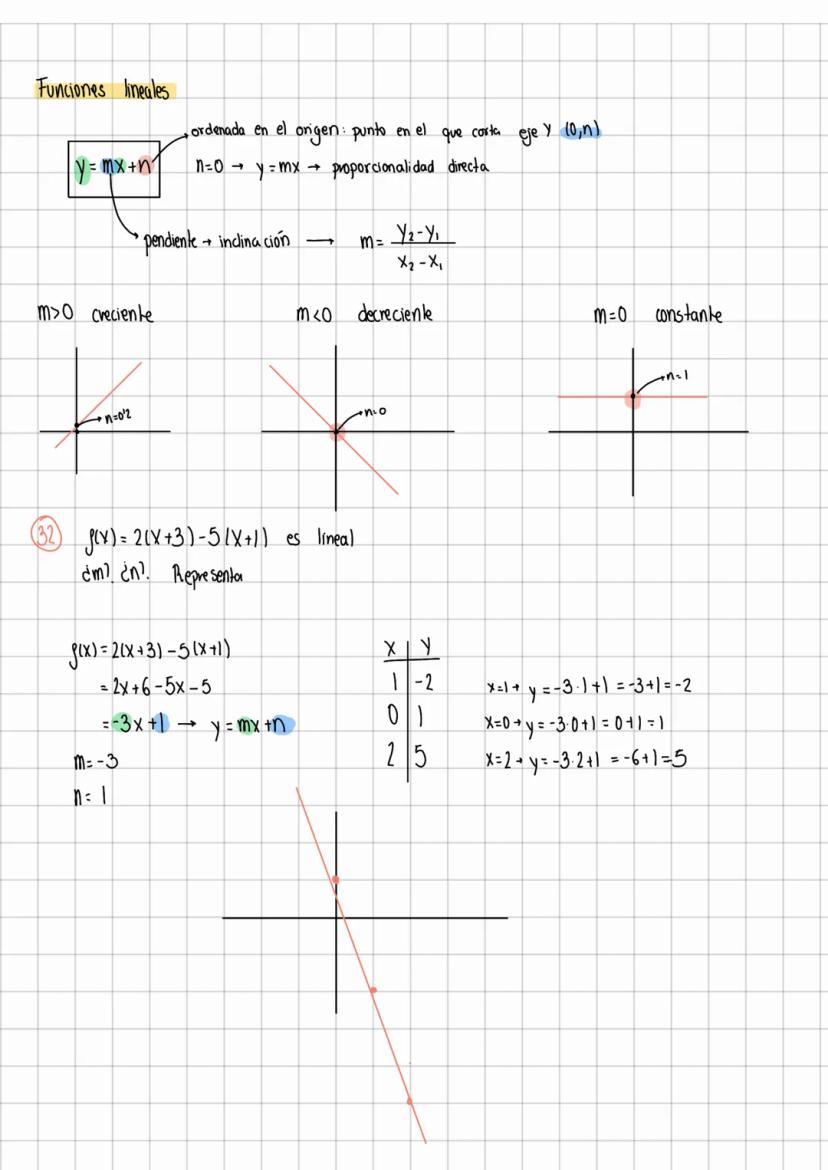 Funciones lineales
ordenada en el origen: punto en el que corta eje Y (0,n)
y = mx + n
n=0 → y = mx → proporcionalidad directa
pendiente → inclinación → m = (Y₂-Y₁)/(X₂-X₁)
m>0 creciente
m<0 decreciente
m=0 constante
n=0'2
n=0
n=1
32 f(x) = 2(x+3)-5(x+1) es lineal
¿m? ¿n?. Representa
f(x) = 2(x+3)-5(x+1)
= 2x+6-5x-5
= -3x+1 → y = mx+n
m = -3
n = 1
X Y
1 -2
0 1
2 5
x=1 → y = -3·1+1 = -3+1 = -2
x=0 → y = -3·0+1 = 0+1 = 1
x=2 → y = -3·2+1 = -6+1 = 5